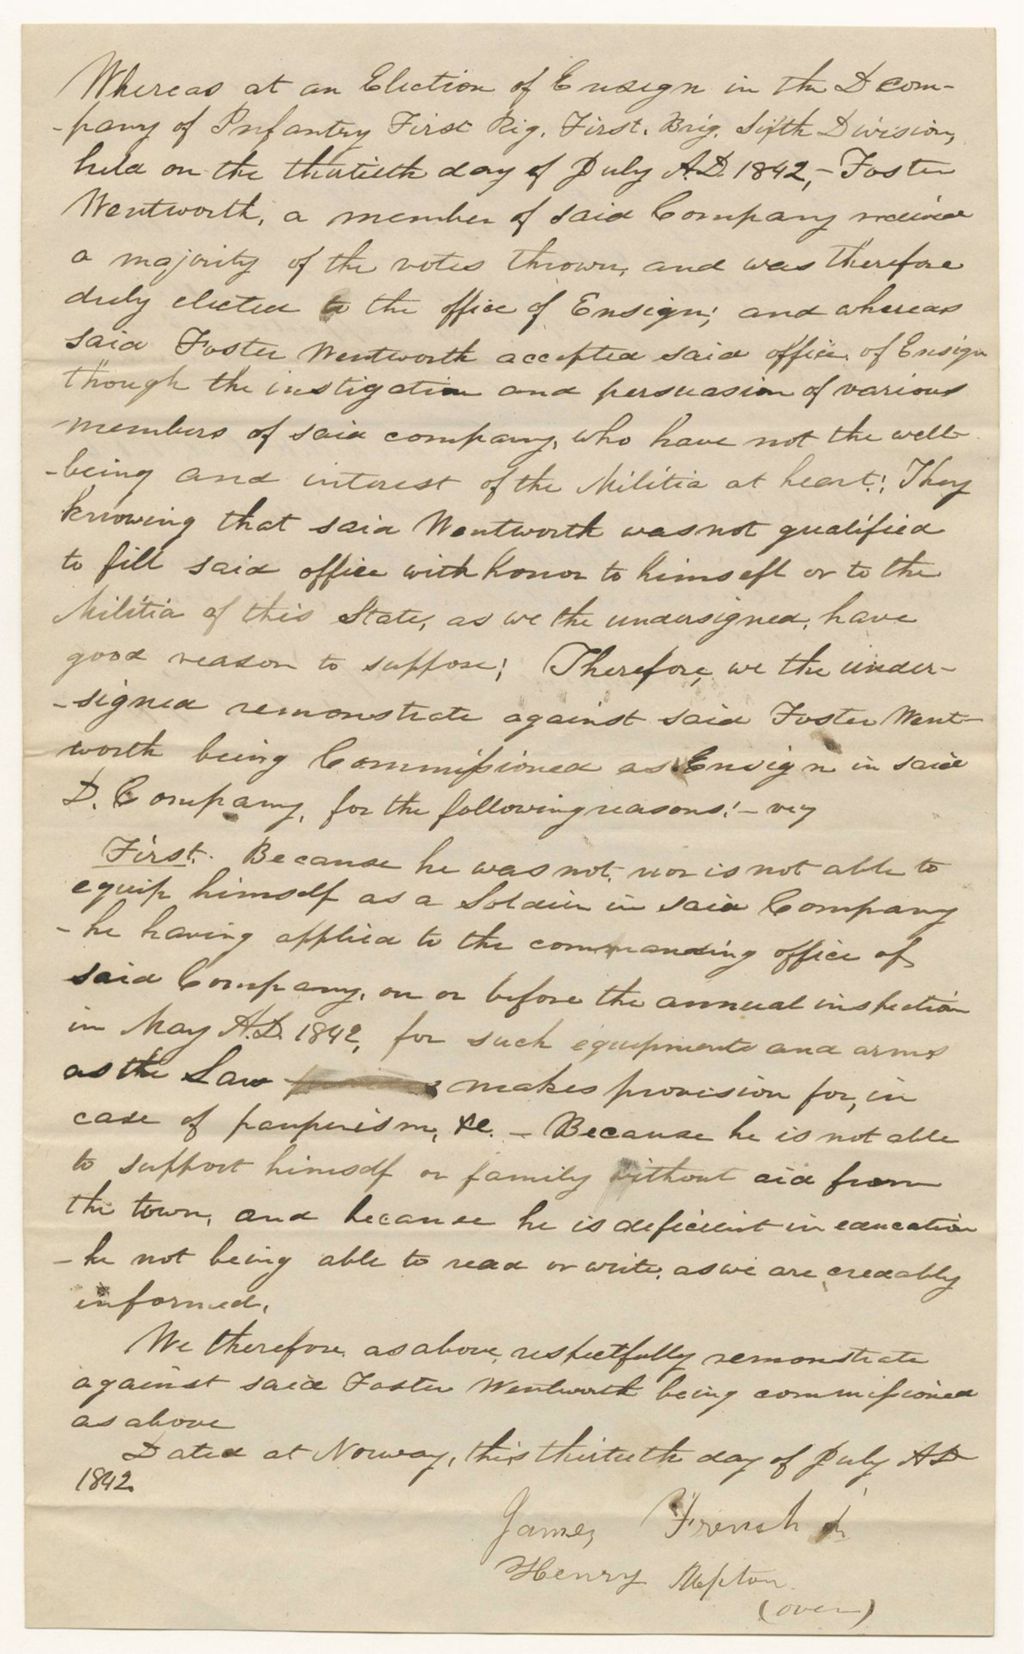 Whereas at an Election of Ensign in the D Com-
-pany of Infantry First Rig. First. Brig. Sixth Division,
held on the thirtieth day of July A.D. 1842,- Foster
Wentworth, a member of said Company received
a majority of the votes thrown, and was therefore
duly elected to the office of Ensign; and whereas
said Foster Wentworth accepted said office, of Ensign
though the instigation and persuasion of various
members of said company, who have not the well-
-being and interest of the Militia at heart: They
knowing that said Wentworth was not qualified
to fill said office with honor to himself or to the
Militia of this State, as we the undersigned, have
good reason to suppose; Therefore, we the under-
-signed remonstrate against said Foster Went-
worth being Commissioned as Ensign in said
D. Company, for the following reasons:-
First. Because he was not, nor is not able to
equip himself as a Soldier in said Company
-he having applied to the commanding office of
said Company, on or before the annual inspection
in May A.D. 1842, for such equipments and arms
as the Law makes provision for, in
case of pauperism, &c. - Because he is not able
to support himself or family without aid from
the town, and because he is deficient in education
-he not being able to read or write, as we are credably
informed.
We therefore, as above, respectfully remonstrate
against said Foster Wentworth being commissioned
as above
Dated at Norway, this thirtieth day of July AD
1842.
James French Jr
Henry Upton
(over)